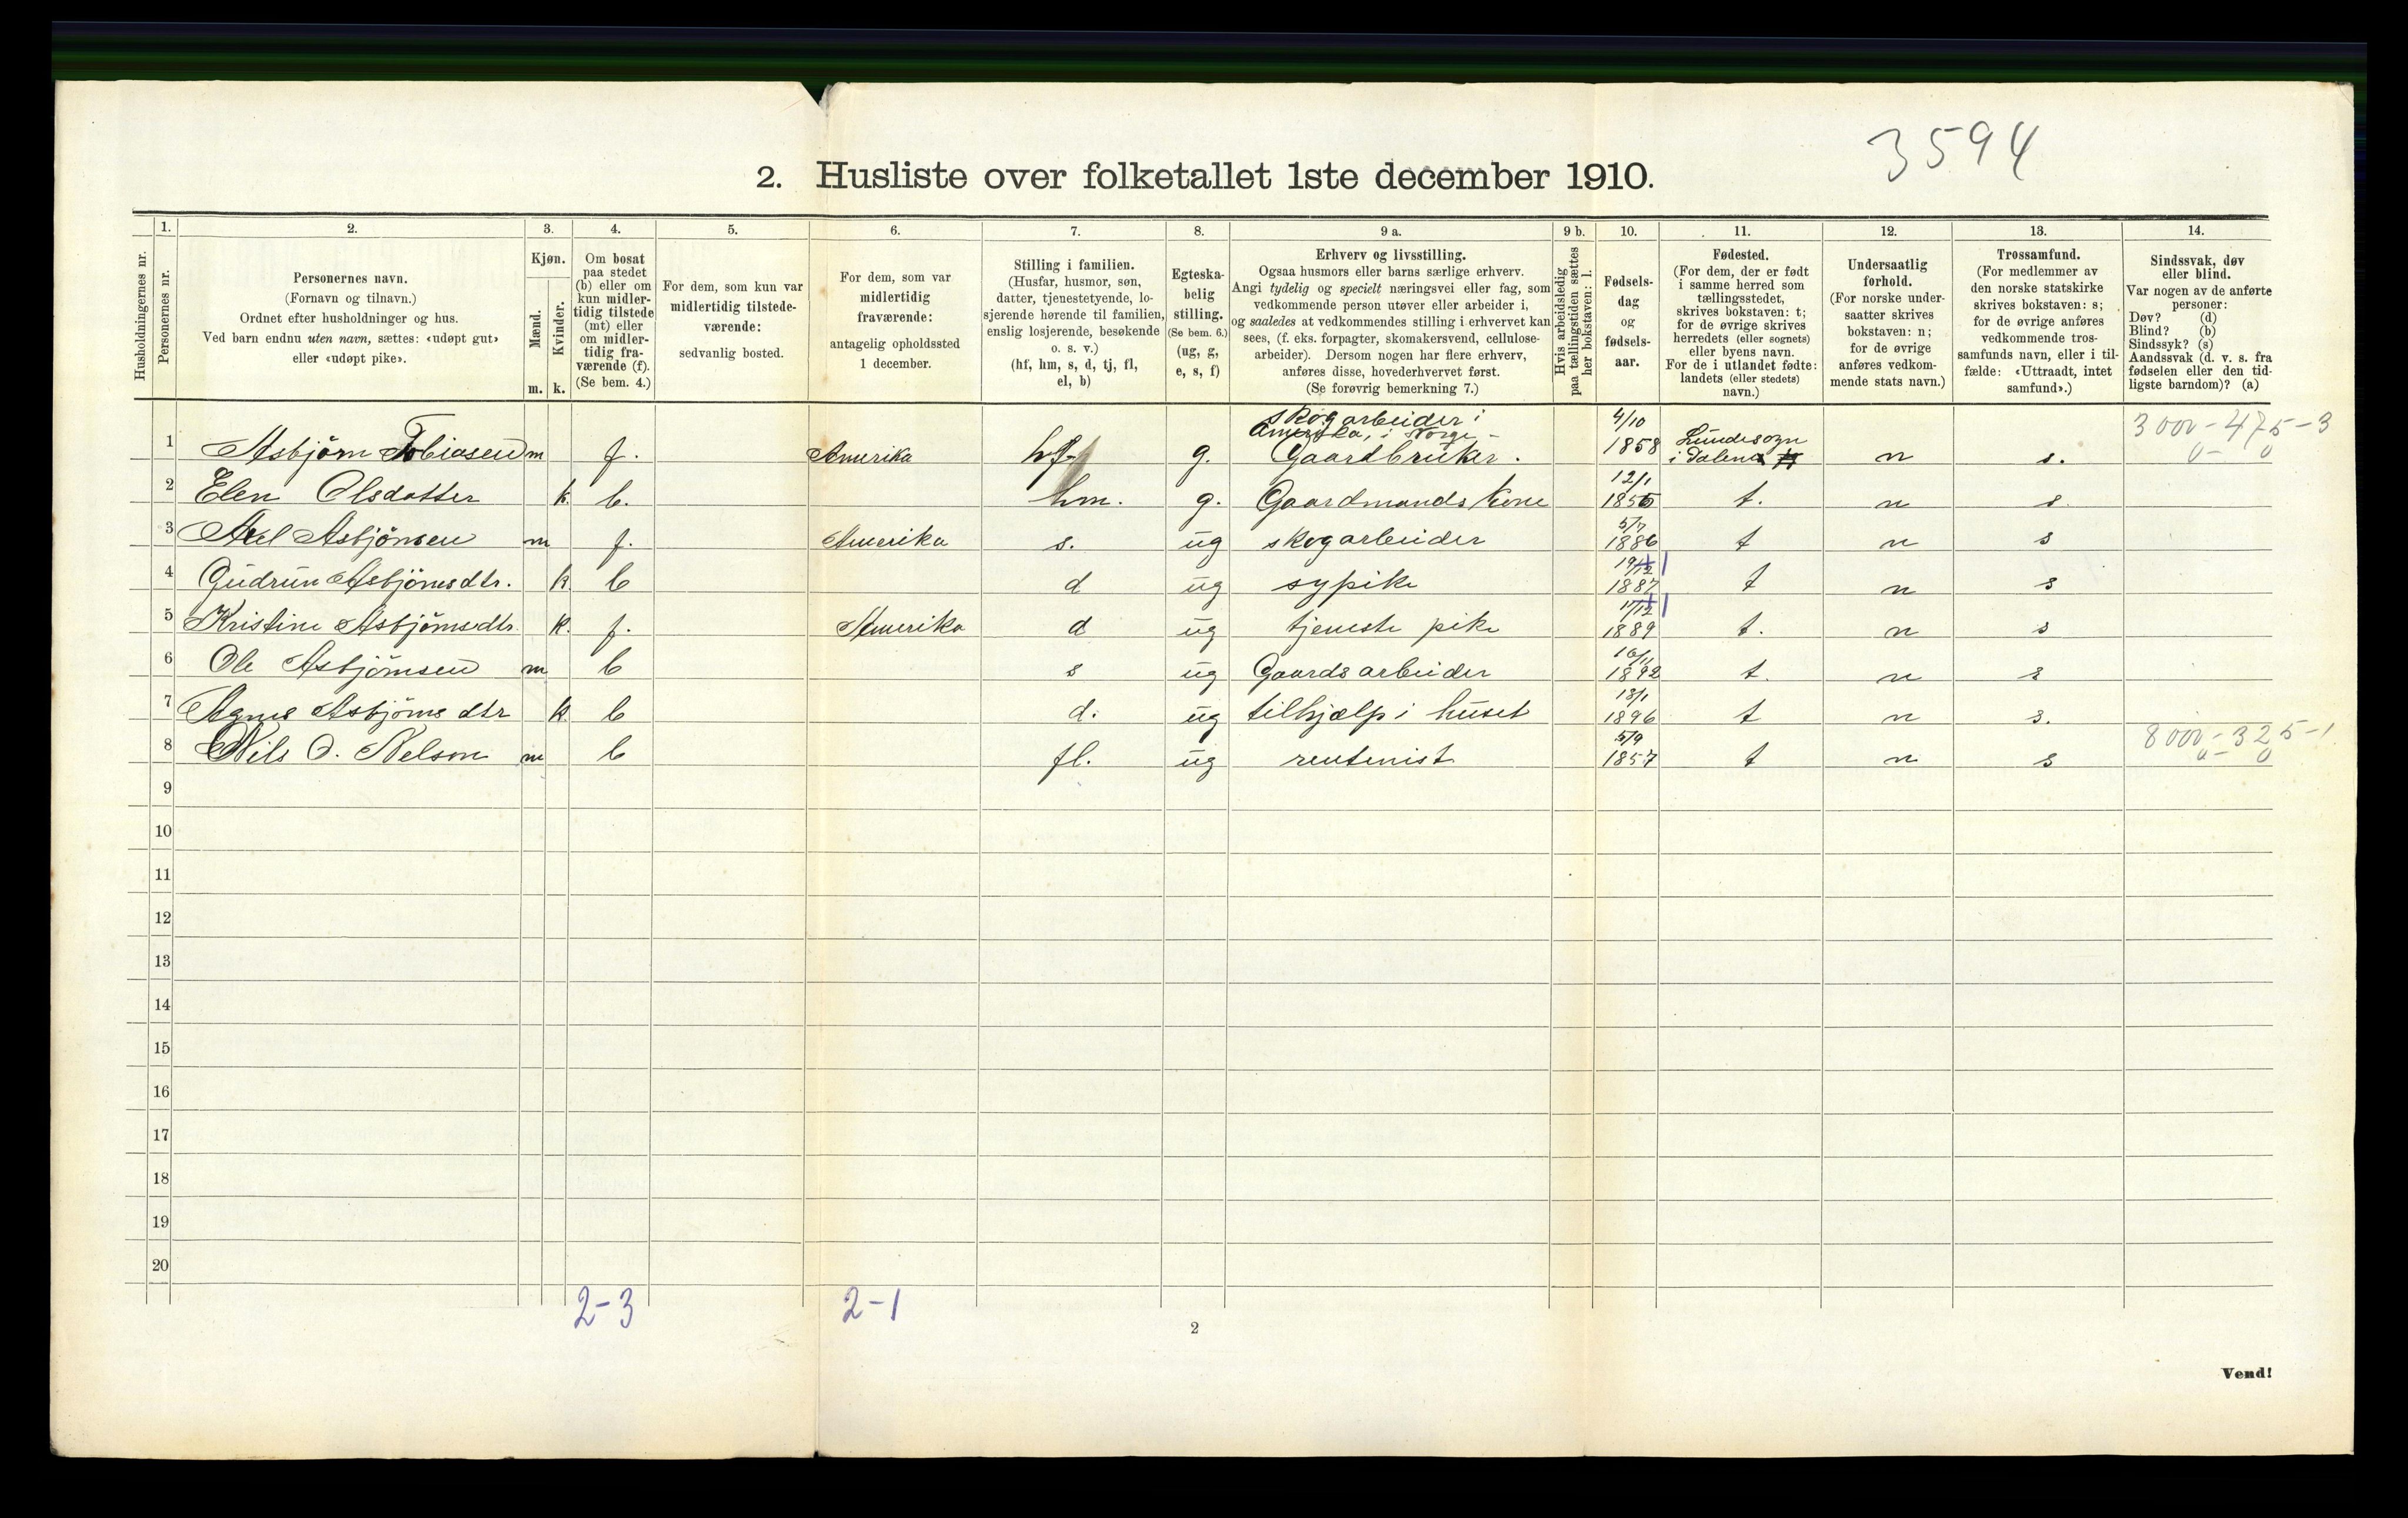 3594
2. Husliste over folketallet 1ste december 1910.
Husholdningernes nr.
1.
Personernes nr.
2.
Personernes navn.
(Fornavn og tilnavn.)
Ordnet efter husholdninger og hus.
Ved barn endnu uten navn, sættes: «udøpt gut»
eller «udøpt pike».
3.
Kjøn.
Mænd.
Kvinder.
m. k.
4.
Om bosat
paa stedet
(b) eller om
kun midler-
tidig tilstede
(mt) eller
om midler-
tidig fra-
værende (f).
(Se bem. 4.)
5.
For dem, som kun var
midlertidig tilstede-
værende:
sedvanlig bosted.
6.
For dem, som var
midlertidig
fraværende:
antagelig opholdssted
1 december.
7.
Stilling i familien.
(Husfar, husmor, søn,
datter, tjenestetyende, lo-
sjerende hørende til familien,
enslig losjerende, besøkende
o. s. v.)
(hf, hm, s, d, tj, fl,
el, b)
8.
Egteska-
belig
stilling.
(Se bem. 6.)
(ug, g,
e, s, f)
9 a.
Erhverv og livsstilling.
Ogsaa husmors eller barns særlige erhverv.
Angi tydelig og specielt næringsvei eller fag, som
vedkommende person utøver eller arbeider i,
og saaledes at vedkommendes stilling i erhvervet kan
sees, (f. eks. forpagter, skomakersvend, cellulose-
arbeider). Dersom nogen har flere erhverv,
anføres disse, hovederhvervet først.
(Se forøvrig bemerkning 7.)
9 b.
Hvis arbeidsledig
paa tællingstiden sættes
her bokstaven: l.
10.
Fødsels-
dag
og
fødsels-
aar.
11.
Fødested.
(For dem, der er født
i samme herred som
tællingsstedet,
skrives bokstaven: t;
for de øvrige skrives
herredets (eller sognets)
eller byens navn.
For de i utlandet fødte:
landets (eller stedets)
navn.)
12.
Undersaatlig
forhold.
(For norske under-
saatter skrives
bokstaven: n;
for de øvrige
anføres vedkom-
mende stats navn.)
13.
Trossamfund.
(For medlemmer av
den norske statskirke
skrives bokstaven: s;
for de øvrige anføres
vedkommende tros-
samfunds navn, eller i til-
fælde: «Uttraadt, intet
samfund».)
14.
Sindssvak, døv
eller blind.
Var nogen av de anførte
personer:
Døv? (d)
Blind? (b)
Sindssyk? (s)
Aandssvak (d. v. s. fra
fødselen eller den tid-
ligste barndom)? (a)
skogarbeider i
Amerika, i Norge -
4/10
3000-475-3
0- 0
1 Asbjörn Tobiasen m f. Amerika hf. g. Gaardbruker. 1858 Lundesogn
i Dalene n s.
12/1
2 Elen Olsdatter k. b. hm. g. Gaardmandskone 1855 t. n s.
5/7
3 Axel Asbjörnsen m f. Amerika s. ug skogarbeider 1886 t n s
19/12
4 Gudrun Asbjörnsdtr. k. b d ug sypike 1887 t n s
17/12
5 Kristine Asbjörnsdtr. k. f. Amerika d ug tjeneste pike 1889 t. n s
16/11
6 Ole Asbjörnsen m b s ug Gaardsarbeider 1892 t. n s
13/1
7 Agnes Asbjörnsdtr k b d. ug tilhjælp i huset 1896 t n s.
5/9
8000-325-1
0- 0
8 Nils O. Nelson m b fl. ug rentenist 1857 t n s
9
10
11
12
13
14
15
16
17
18
19
20
2-3 2-1
2
Vend!